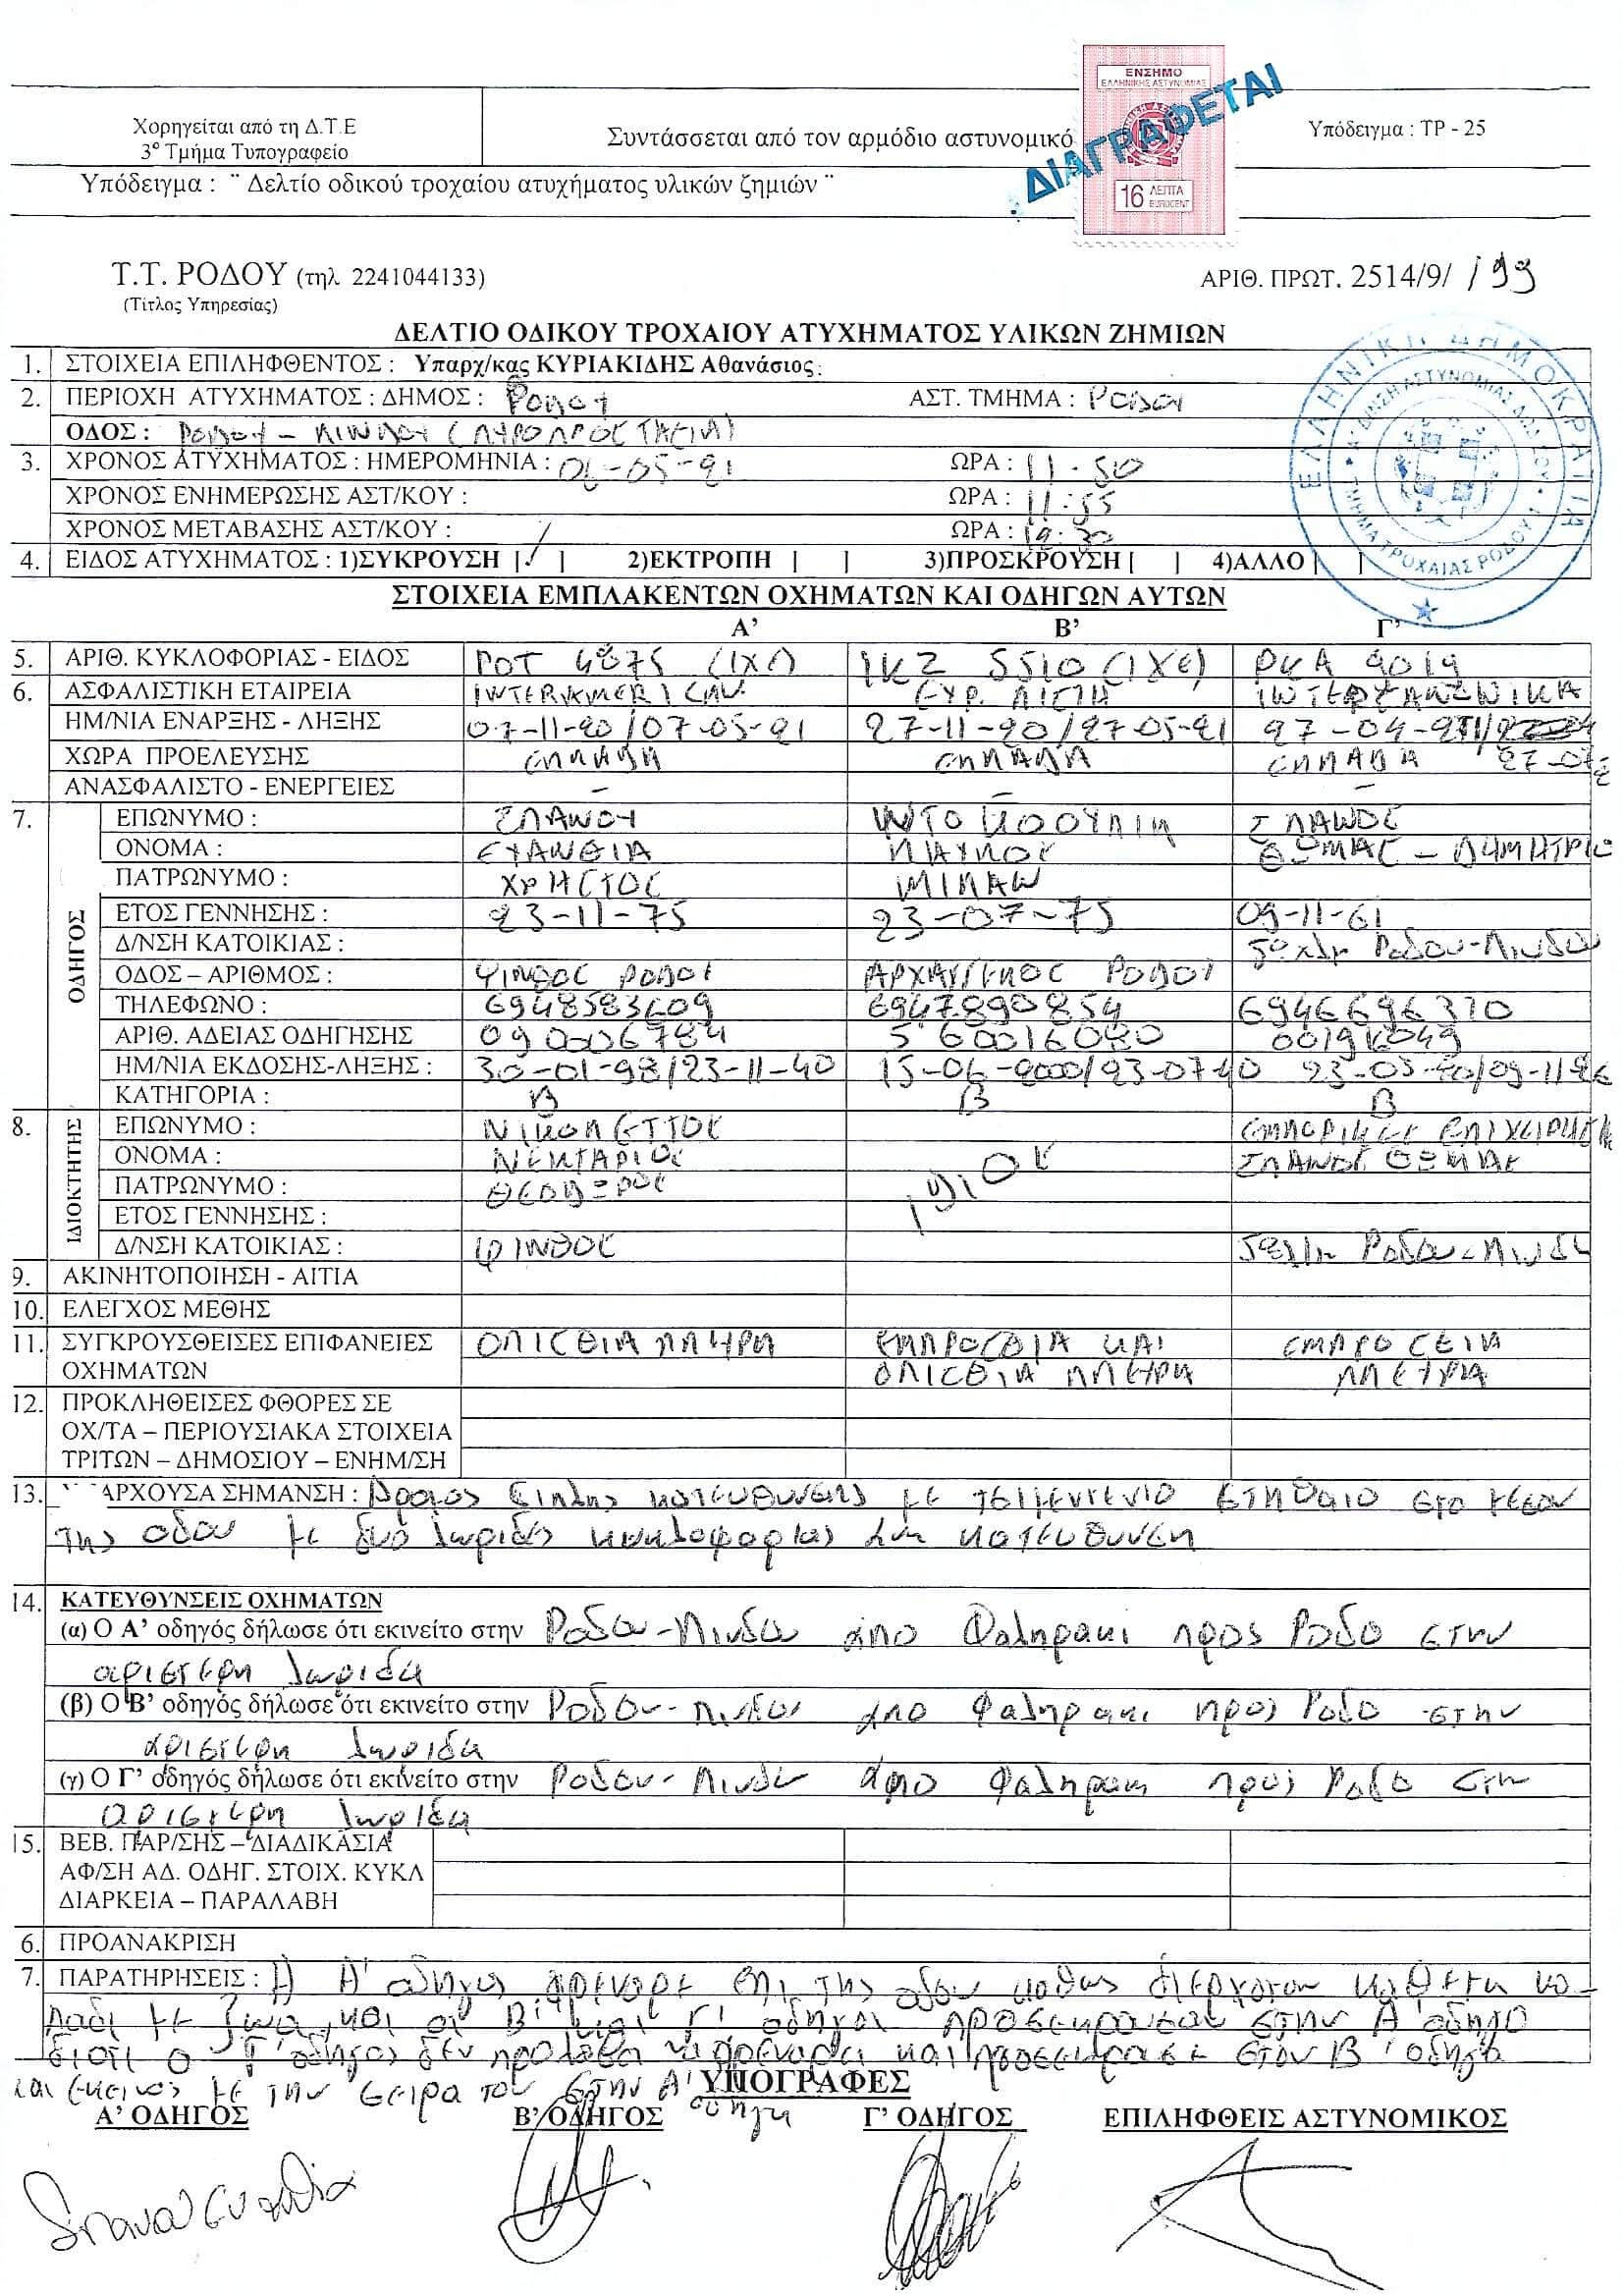 ΕΝΣΗΜΟ
ΕΛΛΗΝΙΚΗΣ ΑΣΤΥΝΟΜΙΑΣ
16 ΛΕΠΤΑ
EUROCENT
ΔΙΑΓΡΑΦΕΤΑΙ
Χορηγείται από τη Δ.Τ.Ε
3º Τμήμα Τυπογραφείο
Συντάσσεται από τον αρμόδιο αστυνομικό
Υπόδειγμα : ΤΡ - 25
Υπόδειγμα : ¨ Δελτίο οδικού τροχαίου ατυχήματος υλικών ζημιών ¨
Τ.Τ. ΡΟΔΟΥ (τηλ 2241044133)
ΑΡΙΘ. ΠΡΩΤ. 2514/9/ 199
(Τίτλος Υπηρεσίας)
ΔΕΛΤΙΟ ΟΔΙΚΟΥ ΤΡΟΧΑΙΟΥ ΑΤΥΧΗΜΑΤΟΣ ΥΛΙΚΩΝ ΖΗΜΙΩΝ
ΕΛΛΗΝΙΚΗ ΔΗΜΟΚΡΑΤΙΑ
ΤΜΗΜΑ ΤΡΟΧΑΙΑΣ ΡΟΔΟΥ
1. ΣΤΟΙΧΕΙΑ ΕΠΙΛΗΦΘΕΝΤΟΣ : Υπαρχ/κας ΚΥΡΙΑΚΙΔΗΣ Αθανάσιος
2. ΠΕΡΙΟΧΗ ΑΤΥΧΗΜΑΤΟΣ : ΔΗΜΟΣ : Ροδου ΑΣΤ. ΤΜΗΜΑ : Ροδου
ΟΔΟΣ : Ροδου - ΛΙΝΔΟΥ (ΠΥΡΟΠΡΟΣΤΑΣΙΑ)
3. ΧΡΟΝΟΣ ΑΤΥΧΗΜΑΤΟΣ : ΗΜΕΡΟΜΗΝΙΑ : 06-05-21 ΩΡΑ : 11.50
ΧΡΟΝΟΣ ΕΝΗΜΕΡΩΣΗΣ ΑΣΤ/ΚΟΥ : ΩΡΑ : 11:55
ΧΡΟΝΟΣ ΜΕΤΑΒΑΣΗΣ ΑΣΤ/ΚΟΥ : ΩΡΑ :
4. ΕΙΔΟΣ ΑΤΥΧΗΜΑΤΟΣ : 1)ΣΥΚΡΟΥΣΗ | / | 2)ΕΚΤΡΟΠΗ | | 3)ΠΡΟΣΚΡΟΥΣΗ [ ] 4)ΑΛΛΟ | |
ΣΤΟΙΧΕΙΑ ΕΜΠΛΑΚΕΝΤΩΝ ΟΧΗΜΑΤΩΝ ΚΑΙ ΟΔΗΓΩΝ ΑΥΤΩΝ
Α' Β' Γ'
5. ΑΡΙΘ. ΚΥΚΛΟΦΟΡΙΑΣ - ΕΙΔΟΣ ΡΟΤ 4875 (ΙΧΕ) ΙΚΖ 5510 (ΙΧΕ) ΡΚΑ 9019
6. ΑΣΦΑΛΙΣΤΙΚΗ ΕΤΑΙΡΕΙΑ INTERAMERICAN. ΕΥΡ. ΠΙΣΤΗ ΙΝΤΕΡΣΑΛΟΝΙΚΑ
ΗΜ/ΝΙΑ ΕΝΑΡΞΗΣ - ΛΗΞΗΣ 07-11-20/07-05-21 27-11-20/27-05-21
ΧΩΡΑ ΠΡΟΕΛΕΥΣΗΣ ΕΛΛΑΔΑ ΕΛΛΑΔΑ ΕΛΛΑΔΑ
ΑΝΑΣΦΑΛΙΣΤΟ - ΕΝΕΡΓΕΙΕΣ - - -
ΟΔΗΓΟΣ
7. ΕΠΩΝΥΜΟ : ΣΠΑΝΟΥ ΣΠΑΝΟΣ
ΟΝΟΜΑ : ΕΥΑΝΘΙΑ ΠΑΥΛΟΣ ΘΩΜΑΣ - ΔΗΜΗΤΡΙΟ
ΠΑΤΡΩΝΥΜΟ : ΧΡΗΣΤΟΣ
ΕΤΟΣ ΓΕΝΝΗΣΗΣ : 23-11-75 23-07-75 09-11-61
Δ/ΝΣΗ ΚΑΤΟΙΚΙΑΣ : 5º χλμ Ροδου-Λινδου
ΟΔΟΣ – ΑΡΙΘΜΟΣ : ΨΙΝΘΟΣ ΡΟΔΟΥ ΑΡΧΑΓΓΕΛΟΣ ΡΟΔΟΥ
ΤΗΛΕΦΩΝΟ : 6948583609 6947890854 6946696310
ΑΡΙΘ. ΑΔΕΙΑΣ ΟΔΗΓΗΣΗΣ 090006784 560016080
ΗΜ/ΝΙΑ ΕΚΔΟΣΗΣ-ΛΗΞΗΣ : 30-01-98/23-11-40 15-06-2000/23-07-40
ΚΑΤΗΓΟΡΙΑ : Β Β Β
ΙΔΙΟΚΤΗΤΗΣ
8. ΕΠΩΝΥΜΟ : ΝΙΚΟΛΕΤΤΟΣ ΕΜΠΟΡΙΚΕΣ ΕΠΙΧΕΙΡΗΣΕΙΣ
ΟΝΟΜΑ : ΝΕΚΤΑΡΙΟΣ ΙΔΙΟΣ ΣΠΑΝΟΣ ΘΩΜΑΣ
ΠΑΤΡΩΝΥΜΟ : ΘΕΟΔΩΡΟΣ
ΕΤΟΣ ΓΕΝΝΗΣΗΣ :
Δ/ΝΣΗ ΚΑΤΟΙΚΙΑΣ : ΨΙΝΘΟΣ 5º χλμ Ροδου-Λινδου
9. ΑΚΙΝΗΤΟΠΟΙΗΣΗ - ΑΙΤΙΑ
10. ΕΛΕΓΧΟΣ ΜΕΘΗΣ
11. ΣΥΓΚΡΟΥΣΘΕΙΣΕΣ ΕΠΙΦΑΝΕΙΕΣ ΟΠΙΣΘΙΑ ΠΛΕΥΡΑ ΕΜΠΡΟΣΘΙΑ ΚΑΙ ΕΜΠΡΟΣΘΙΑ
ΟΧΗΜΑΤΩΝ ΟΠΙΣΘΙΑ ΠΛΕΥΡΑ ΠΛΕΥΡΑ
12. ΠΡΟΚΛΗΘΕΙΣΕΣ ΦΘΟΡΕΣ ΣΕ
ΟΧ/ΤΑ – ΠΕΡΙΟΥΣΙΑΚΑ ΣΤΟΙΧΕΙΑ
ΤΡΙΤΩΝ – ΔΗΜΟΣΙΟΥ – ΕΝΗΜ/ΣΗ
13. ΑΡΧΟΥΣΑ ΣΗΜΑΝΣΗ : Δρομος διπλης κατευθυνσης με τσιμεντενιο στηθαιο στο μεσον
της οδου με δυο λωριδες κυκλοφοριας ανα κατευθυνση
14. ΚΑΤΕΥΘΥΝΣΕΙΣ ΟΧΗΜΑΤΩΝ
(α) Ο Α' οδηγός δήλωσε ότι εκινείτο στην Ροδου-Λινδου απο Φαληρακι προς Ροδο στην
αριστερη λωριδα
(β) Ο Β' οδηγός δήλωσε ότι εκινείτο στην Ροδου-Λινδου απο Φαληρακι προς Ροδο στην
αριστερη λωριδα
(γ) Ο Γ' οδηγός δήλωσε ότι εκινείτο στην Ροδου-Λινδου απο Φαληρακι προς Ροδο στην
αριστερη λωριδα
15. ΒΕΒ. ΠΑΡ/ΣΗΣ – ΔΙΑΔΙΚΑΣΙΑ
ΑΦ/ΣΗ ΑΔ. ΟΔΗΓ. ΣΤΟΙΧ. ΚΥΚΛ
ΔΙΑΡΚΕΙΑ – ΠΑΡΑΛΑΒΗ
6. ΠΡΟΑΝΑΚΡΙΣΗ
7. ΠΑΡΑΤΗΡΗΣΕΙΣ : Η Α' οδηγος φρεναρε επι της οδου καθως διερχοταν καθετα κο-
παδι με ζωα, και οι Β' και Γ' οδηγοι προσεκρουσαν στην Α' οδηγο
διοτι ο Γ' οδηγος δεν προλαβε να φρεναρει και προσεκρουσε στον Β' οδηγο
και εκεινος με την σειρα του στην Α' οδηγο
ΥΠΟΓΡΑΦΕΣ
Α' ΟΔΗΓΟΣ Β' ΟΔΗΓΟΣ Γ' ΟΔΗΓΟΣ ΕΠΙΛΗΦΘΕΙΣ ΑΣΤΥΝΟΜΙΚΟΣ
Σπανού Ευανθία